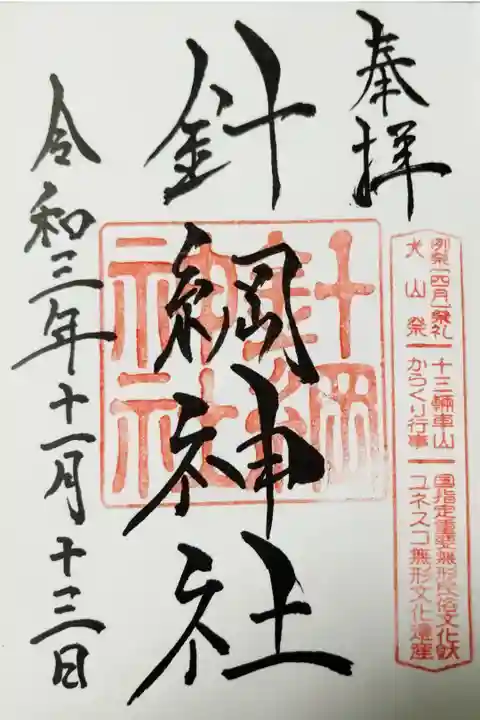 奉拝
例祭「四月」祭礼 十三輛車山 国指定重要無形民俗文化財
犬山祭 からくり行事 ユネスコ無形文化遺産
針綱神社
針綱神社
令和三年十一月十三日